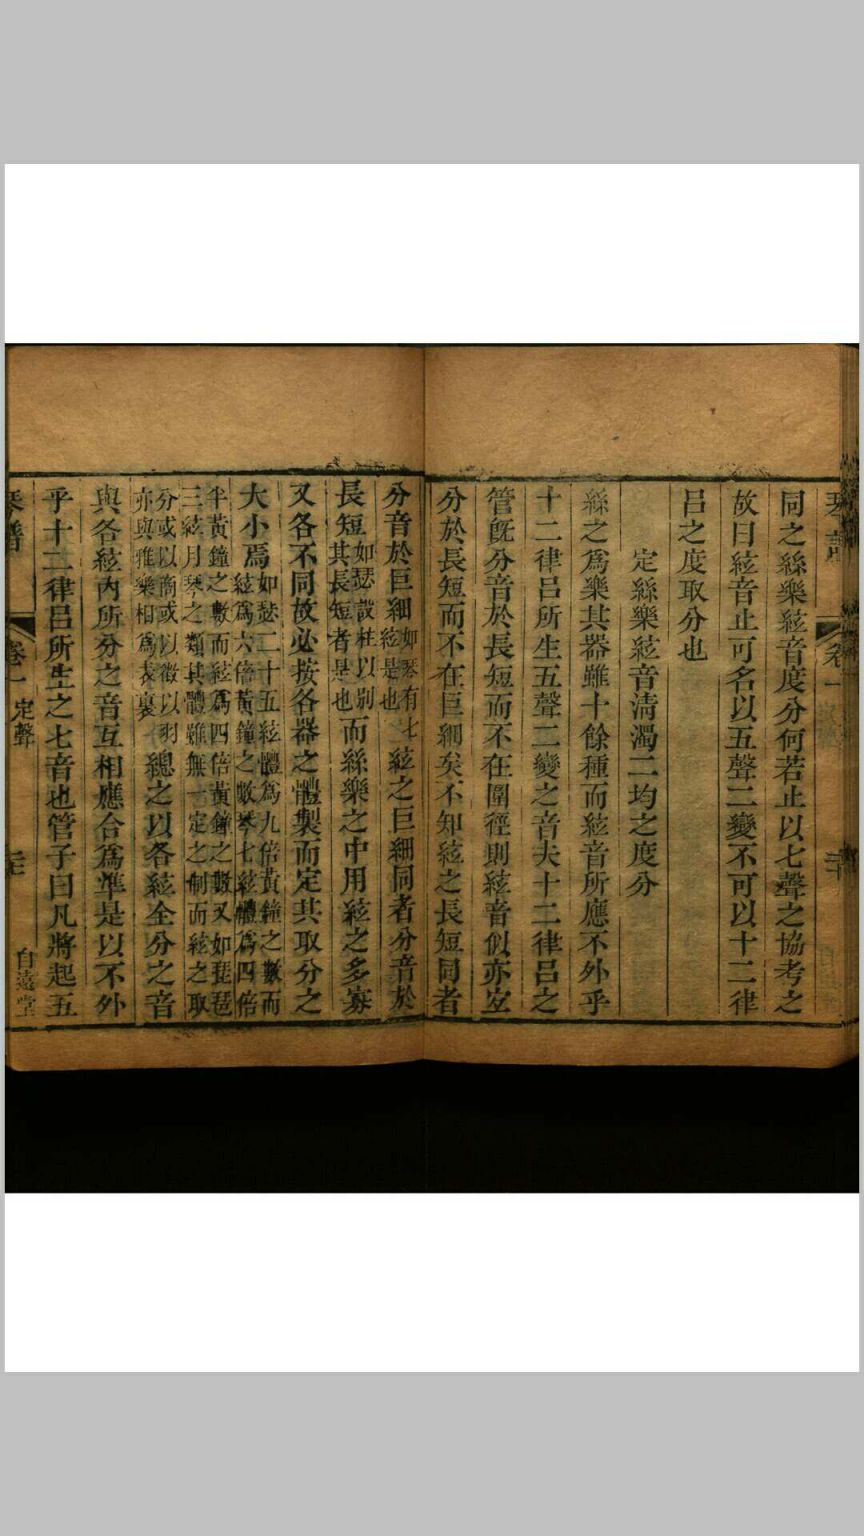 同之絲樂絃音度分何若止以七聲之協考之
故曰絃音止可名以五聲二變不可以十二律
呂之度取分也
定絲樂絃音清濁二均之度分
絲之爲樂其器雖十餘種而絃音所應不外乎
十二律呂所生五聲二變之音夫十二律呂之
管旣分音於長短而不在圍徑則絃音似亦宜
分於長短而不在巨細矣不知絃之長短同者
分音於巨細
如琴有七
絃是也
絃之巨細同者分音於
長短
如瑟設柱以別
其長短者是也
而絲樂之中用絃之多寡
又各不同故必按各器之體製而定其取分之
大小焉
如瑟二十五絃體爲九倍黃鐘之數而
絃爲六倍黃鐘之數琴七絃體爲四倍
半黃鐘之數而絃爲四倍黃鐘之數又如琵琶
三絃月琴之類其體雖無一定之制而絃之取
分或以商或以徵以羽
亦與雅樂相爲表裏
總之以各絃全分之音
與各絃內所分之音互相應合爲準是以不外
乎十二律呂所生之七音也管子曰凡將起五
琴譜
卷一
定聲
自遠堂